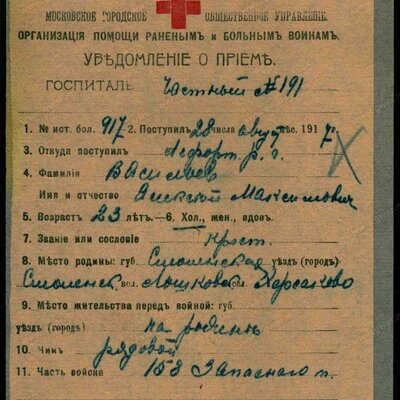 МОСКОВСКОЕ ГОРОДСКОЕ ОБЩЕСТВЕННОЕ УПРАВЛЕНІЕ.
ОРГАНИЗАЦІЯ ПОМОЩИ РАНЕНЫМЪ И БОЛЬНЫМЪ ВОИНАМЪ.
УВѢДОМЛЕНІЕ О ПРІЕМѢ.
ГОСПИТАЛЬ Частный № 191
1. № ист. бол. 917 2. Поступилъ 28 числа август мѣс. 1917 г.
3. Откуда поступилъ Лефорт. р. г.
4. Фамилія Васильев
Имя и отчество Алексѣй Максимович
5. Возрастъ 23 лѣтъ.—6. Хол., жен., вдов.
7. Званіе или сословіе Крест.
8. Мѣсто родины: губ. Смоленская уѣздъ (городъ)
Смоленск. вол. дер.
9. Мѣсто жительства передъ войной: губ.
уѣздъ (городъ) на родинѣ
10. Чинъ рядовой
11. Часть войска 153 Запаснаго п.